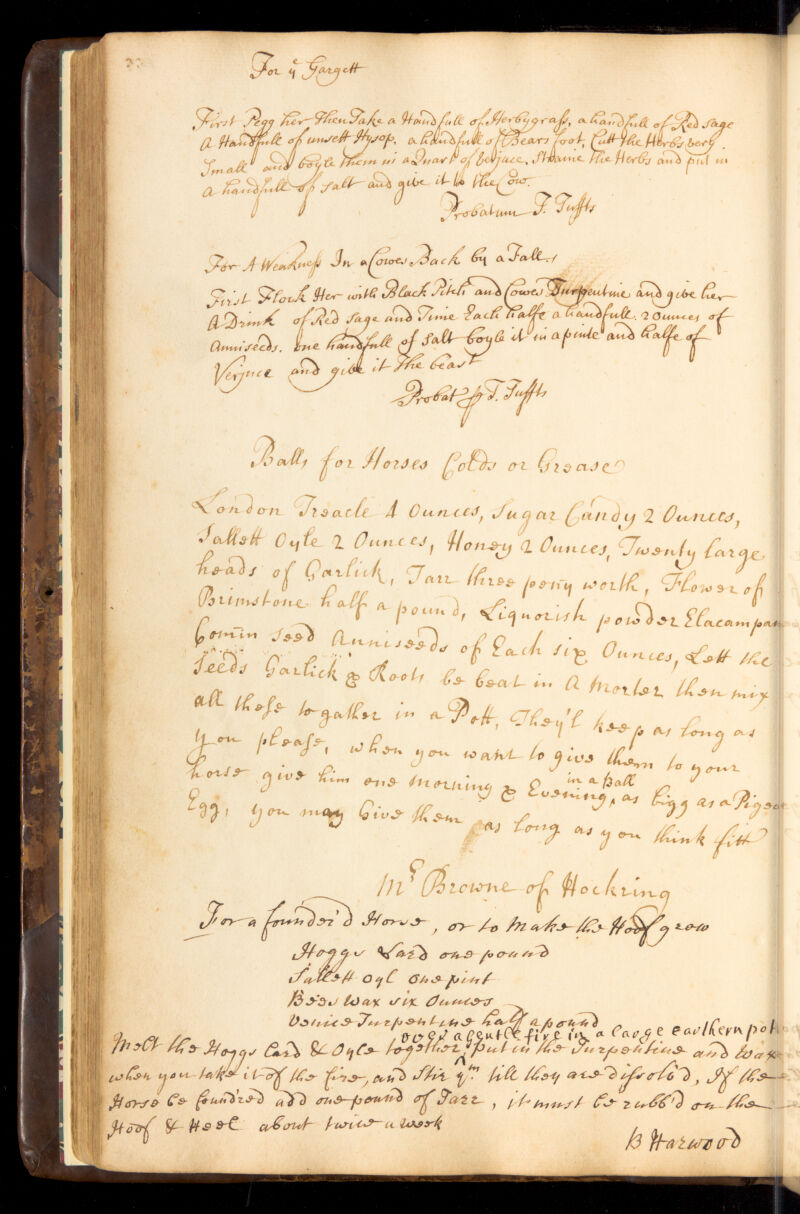 For yͤ Gargett
First Pegg her Then Take a Handfull of Herbygrass, a handfull of Red Sage
A Handfull of unsett Hysop, a handfull of Bears foot, Cutt the Herbs very
Small and boyle them in a Quart of Verjuce, Straine the Herbs and put in
a handfull of Salt and give it to the Cow.
Probatum T. Tuffts
For A Weakness In a Cowes Back by a Fall.
First Flock Her with Black Pitch and Cowes Turpentine and give her
A Drink of Red Sage and Time Each halfe a handfull. 2 ounces of
Anniseeds. one handfull of Salt boyle it in a pinte and halfe of
Verjuce and give it the beast
Probat ꝑ T. Tuffts
Balls for Horses Colds or Grease
London Treacle 4 Ounces, Sugar Candy 2 Ounces,
Sallett Oyle 2 Ounces, Honey 2 Ounces, Twenty large
heads of Garlick, Tarr three peny worth, Flower of
Brimstone half a pound, Liquorish powder Elacampan
Comin Seed Anniseeds of Each six Ounces, Lett the
Seeds Garlick & Roots be beat in A Morter then mix
all these togather in a Pott, They'l keep as long as
you please, when you want to give them to your
horse give him one Morning & Evening, as bigg as a Pigeo
in a Ball
Egg, you may Give them as long as you think fitt
Mr Browne of Hockring
For a founder'd Horse, or to Make the Hoof grow
Hoggs Lard one pound
Sallett oyl one pint
Bees Wax six Ounces
Venice Turpentine half a pound
over a gentle fire in a large earthern pot
Melt the Hoggs Lard & Oyle together, put in the Turpentine and Wax
when you take it of the fire, and Stir yᵐ till they are dissolv'd, If the
Horse be foundred add one pound of Tarr, it must be rubb'd on the
Hoof & Heel about twice a week
B Harwood